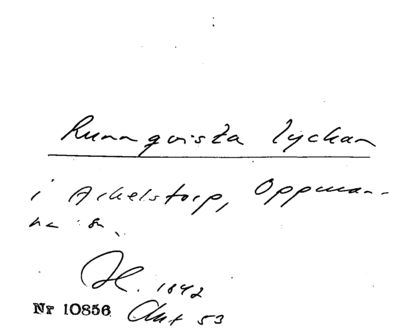 Runnqvista lyckan
i Arkelstorp, Oppman-
na sn.
H. 1842
Nr 10856 Akt 53